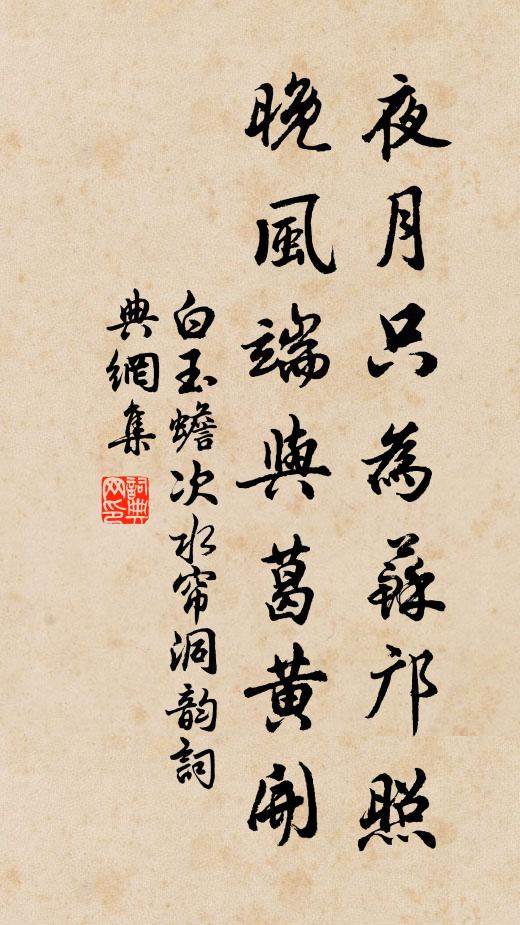 夜月只為蘇邝照
晚風端與葛黄開
白玉蟾次水帘洞韵詞
典網集
詞典网印